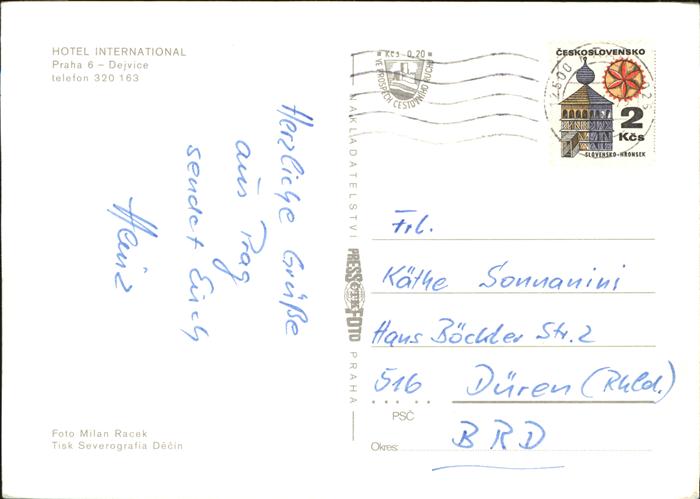 HOTEL INTERNATIONAL
Praha 6 – Dejvice
telefon 320 163
Herzliche Grüße
aus Prag
sendet Euch
Heinz
Foto Milan Racek
Tisk Severografia Děčín
NAKLADATELSTVÍ
PRESSFOTO
ČTK
PRAHA
Kčs 0,20
VE PROSPĚCH CESTOVNÍHO RUCHU
ČESKOSLOVENSKO
2
Kčs
SLOVENSKO-HRONSEK
Frl.
Käthe Sonnanini
Hans Böckler Str. 2
516 Düren (Rhld.)
PSČ
Okres: BRD